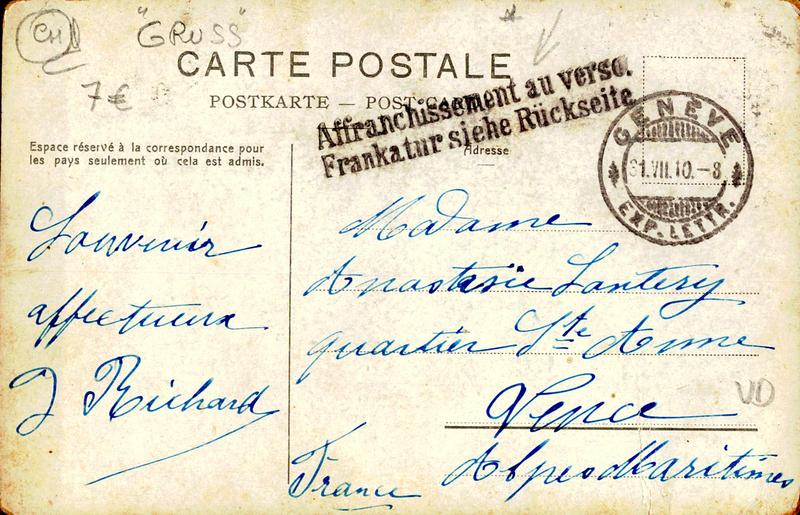 CH
"GRUSS"
7€
CARTE POSTALE
POSTKARTE — POST-CARD
Affranchissement au verso.
Frankatur siehe Rückseite
Espace réservé à la correspondance pour
les pays seulement où cela est admis.
Adresse
GENÈVE
31.VII.10.-8
EXP. LETTR.
Souvenir
affectueux
J Richard
Madame
Anastasie Lantery
quartier Ste Anne
Vence
Alpes Maritimes
France
VD